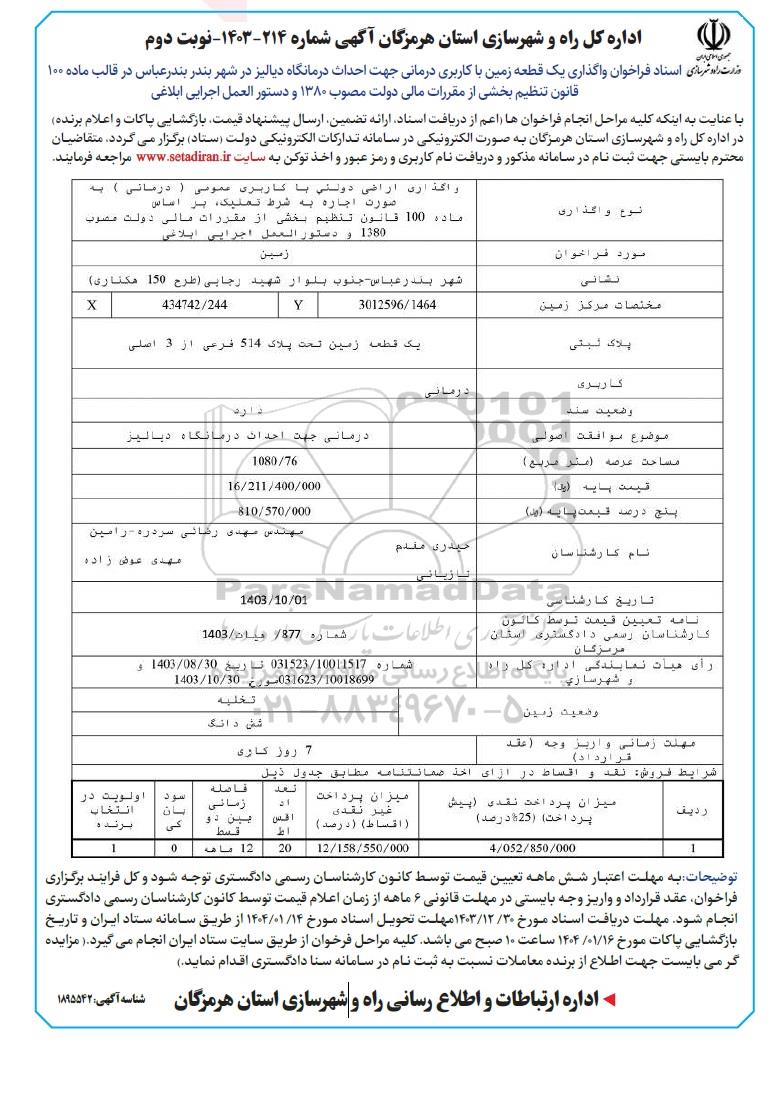 اداره کل راه و شهرسازی استان هرمزگان آگهی شماره ۲۱۴-۱۴۰۳-نوبت دوم
جمهوری اسلامی ایران
وزارت راه و شهرسازی
اسناد فراخوان واگذاری یک قطعه زمین با کاربری درمانی جهت احداث درمانگاه دیالیز در شهر بندر بندرعباس در قالب ماده ۱۰۰
قانون تنظیم بخشی از مقررات مالی دولت مصوب ۱۳۸۰ و دستور العمل اجرایی ابلاغی
با عنایت به اینکه کلیه مراحل انجام فراخوان ها (اعم از دریافت اسناد، ارائه تضمین، ارسال پیشنهاد قیمت، بازگشایی پاکات و اعلام برنده)
در اداره کل راه و شهرسازی استان هرمزگان به صورت الکترونیکی در سامانه تدارکات الکترونیکی دولت (ستاد) برگزار می گردد، متقاضیان
محترم بایستی جهت ثبت نام در سامانه مذکور و دریافت نام کاربری و رمز عبور و اخذ توکن به سایت www.setadiran.ir مراجعه فرمایند.
نوع واگذاری
واگذاری اراضی دولتی با کاربری عمومی ( درمانی ) به
صورت اجاره به شرط تملیک، بر اساس
ماده 100 قانون تنظیم بخشی از مقررات مالی دولت مصوب
1380 و دستورالعمل اجرایی ابلاغی
مورد فراخوان زمین
نشانی شهر بندرعباس-جنوب بلوار شهید رجایی(طرح 150 هکتاری)
مختصات مرکز زمین 3012596/1464 Y 434742/244 X
پلاک ثبتی یک قطعه زمین تحت پلاک 514 فرعی از 3 اصلی
کاربری درمانی
وضعیت سند دارد
موضوع موافقت اصولی درمانی جهت احداث درمانگاه دیالیز
مساحت عرصه (متر مربع) 1080/76
قیمت پایه (ریال) 16/211/400/000
پنج درصد قیمت‌پایه (ریال) 810/570/000
نام کارشناسان
مهندس مهدی رضائی سردره-رامین
حیدری مقدم
مهدی عوض زاده
تازیانی
تاریخ کارشناسی 1403/10/01
نامه تعیین قیمت توسط کانون
کارشناسان رسمی دادگستری استان
هرمزگان
شماره 877/ هیات/1403
رأی هیأت نمایندگی اداره کل راه
و شهرسازی
شماره 031523/10011517 تاریخ 1403/08/30 و
031623/10018699مورخ 1403/10/30
وضعیت زمین
تخلیه
شش دانگ
مهلت زمانی واریز وجه (عقد
قرارداد)
7 روز کاری
شرایط فروش: نقد و اقساط در ازای اخذ ضمانتنامه مطابق جدول ذیل
ردیف
میزان پرداخت نقدی (پیش
پرداخت) (25%درصد)
میزان پرداخت
غیر نقدی
(اقساط) (درصد)
تعد
اد
اقس
اط
فاصله
زمانی
بین دو
قسط
سود
بان
کی
اولویت در
انتخاب
برنده
1 4/052/850/000 12/158/550/000 20 12 ماهه 0 1
توضیحات:به مهلت اعتبار شش ماهه تعیین قیمت توسط کانون کارشناسان رسمی دادگستری توجه شود و کل فرایند برگزاری
فراخوان، عقد قرارداد و واریز وجه بایستی در مهلت قانونی ۶ ماهه از زمان اعلام قیمت توسط کانون کارشناسان رسمی دادگستری
انجام شود. مهلت دریافت اسناد مورخ ۱۴۰۳/۱۲/۳۰مهلت تحویل اسناد مورخ ۱۴۰۴/۰۱/۱۴ از طریق سامانه ستاد ایران و تاریخ
بازگشایی پاکات مورخ ۱۴۰۴/۰۱/۱۶ ساعت ۱۰ صبح می باشد. کلیه مراحل فرخوان از طریق سایت ستاد ایران انجام می گیرد.( مزایده
گر می بایست جهت اطلاع از برنده معاملات نسبت به ثبت نام در سامانه سنا دادگستری اقدام نماید.)
اداره ارتباطات و اطلاع رسانی راه و شهرسازی استان هرمزگان
شناسه آگهی: ۱۸۹۵۵۴۲
ParsNamadData
پایگاه اطلاع رسانی
۰۲۱-۸۸۳۴۹۶۷۰-۵